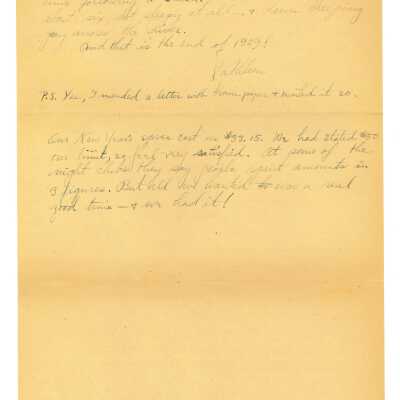 out six, not sleepy at all — & down
guy across the
And that is the end of 1909!
Kathleen
P.S. Yes, I mended a letter with & mailed it so.
Our New Year's spree cost us $39.15. We had stated $50
our limit, so feel very satisfied. At some of the
night clubs they say people spent amounts in
3 figures. But all we wanted was a real
good time — & we had it!